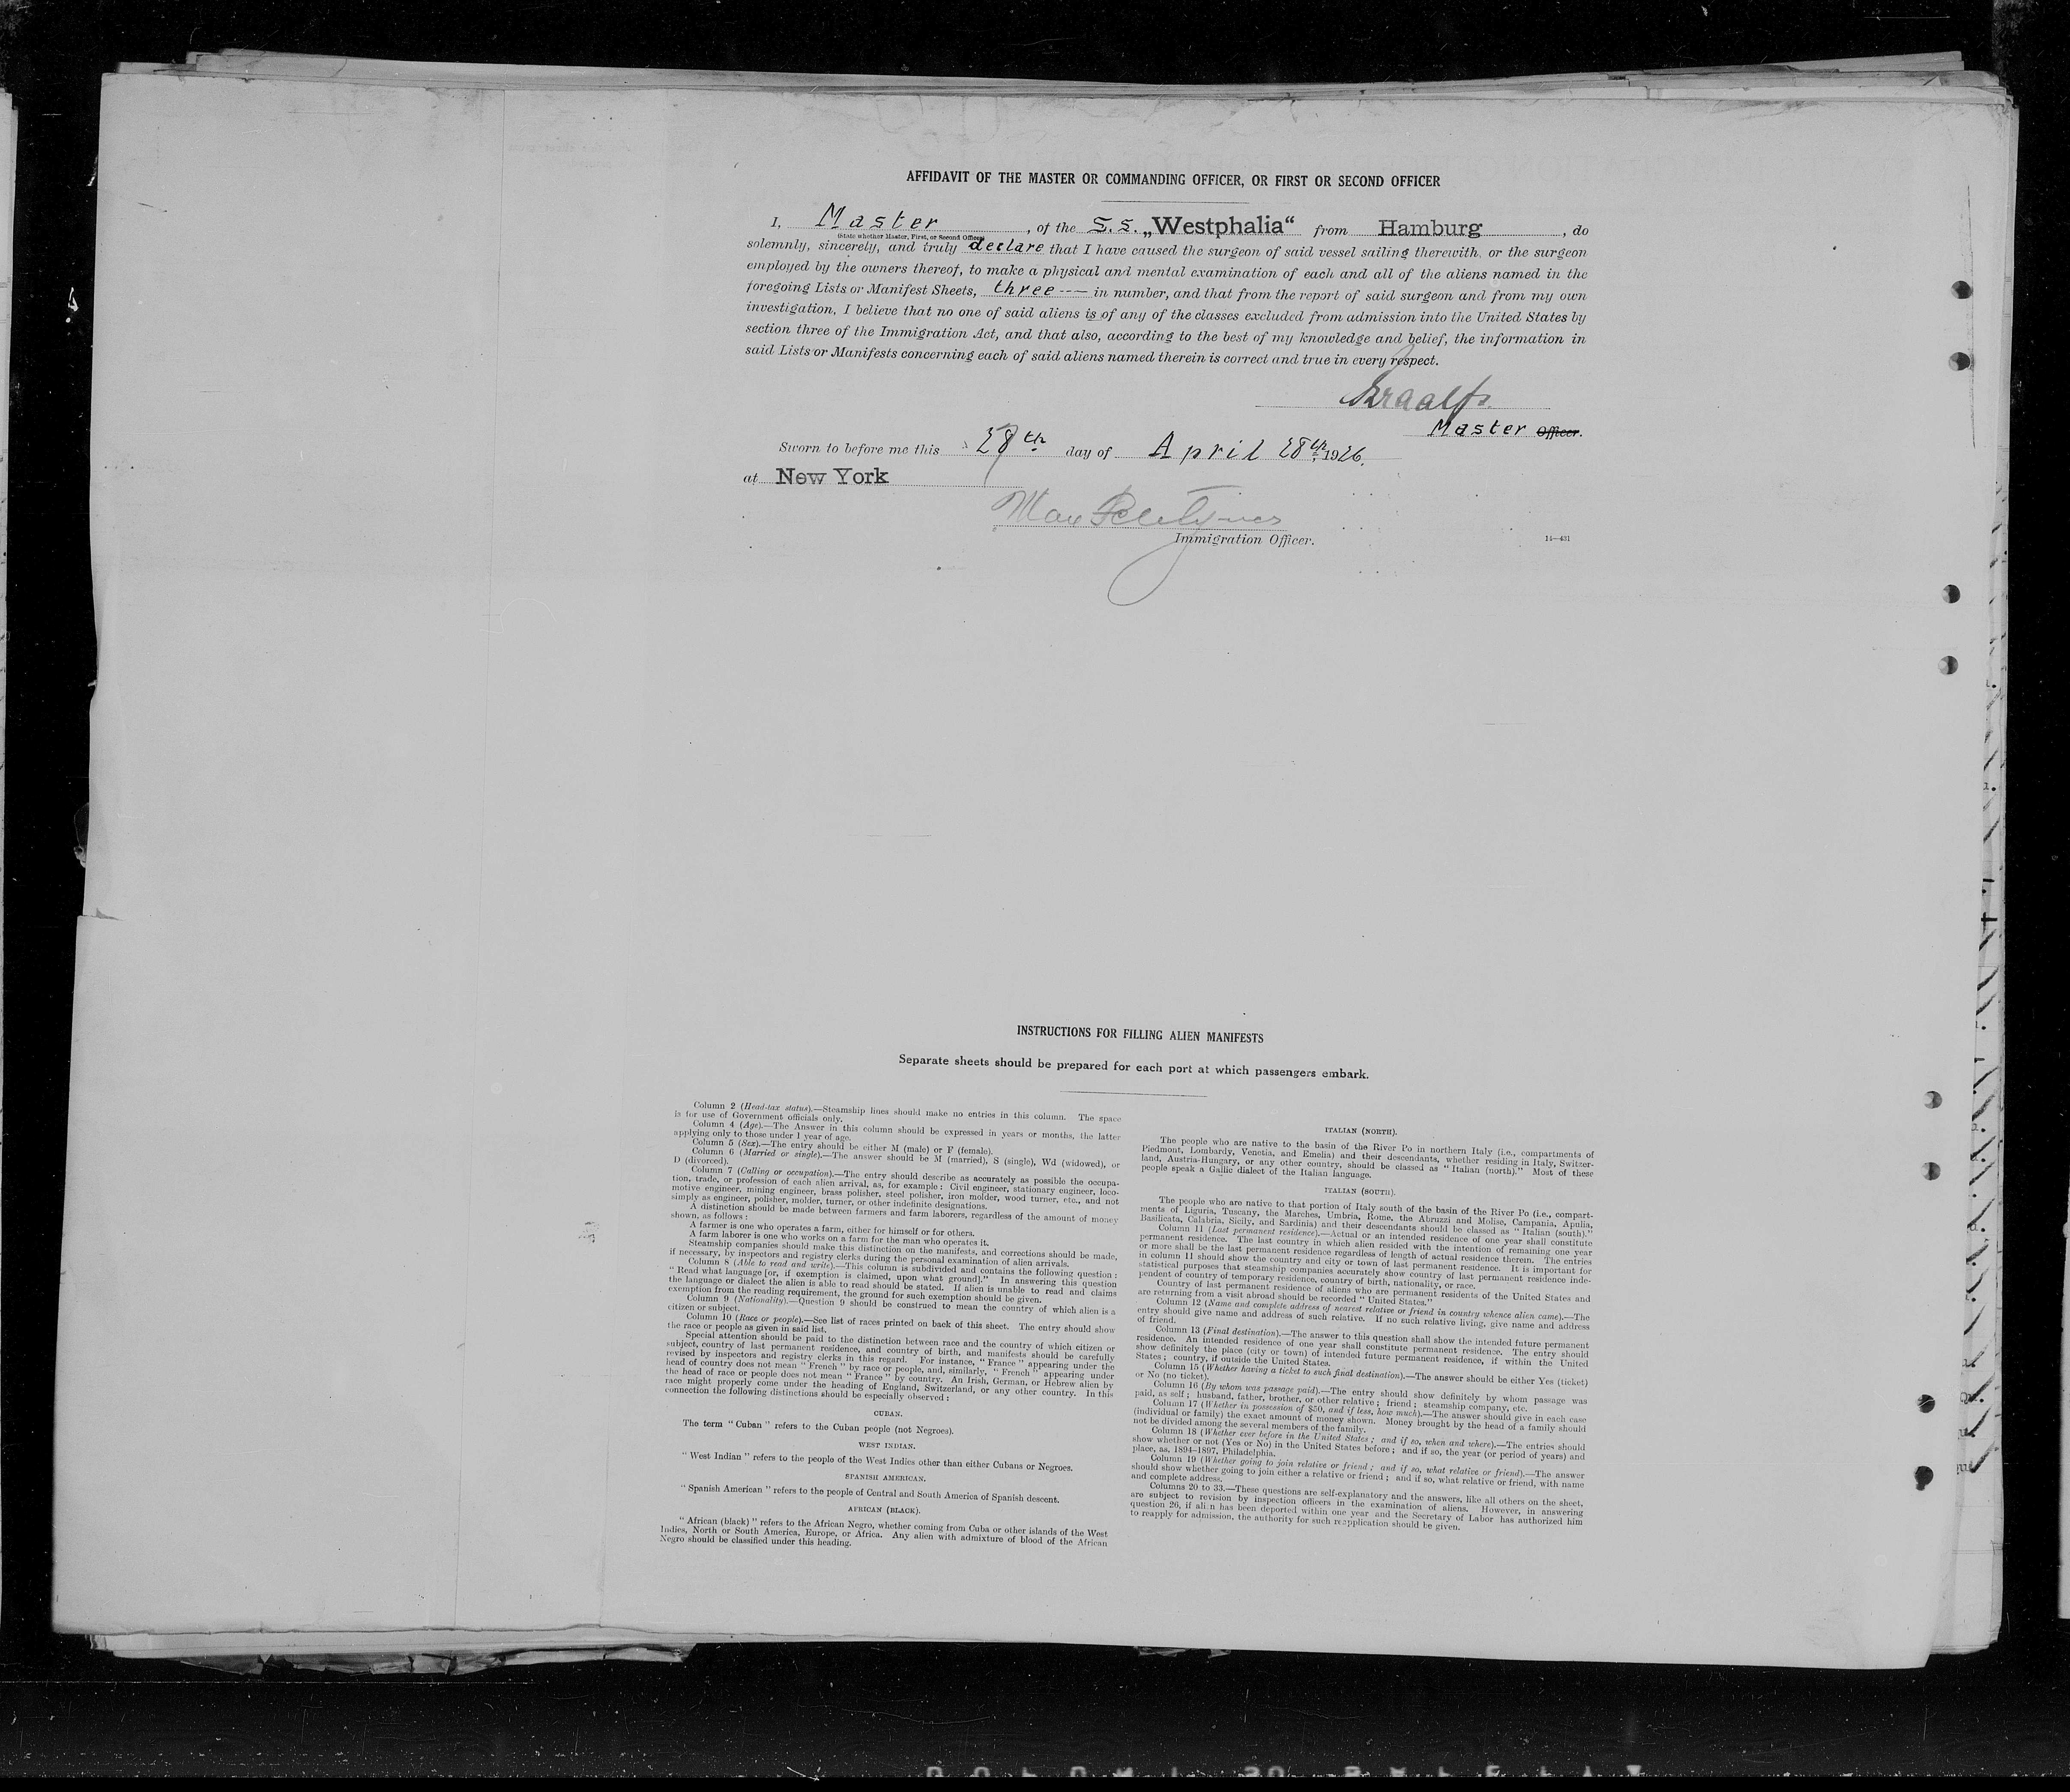 AFFIDAVIT OF THE MASTER OR COMMANDING OFFICER, OR FIRST OR SECOND OFFICER
I, Master, of the S.S. „Westphalia“ from Hamburg, do
(State whether Master, First, or Second Officer)
solemnly, sincerely, and truly declare that I have caused the surgeon of said vessel sailing therewith, or the surgeon
employed by the owners thereof, to make a physical and mental examination of each and all of the aliens named in the
foregoing Lists or Manifest Sheets, three --- in number, and that from the report of said surgeon and from my own
investigation, I believe that no one of said aliens is of any of the classes excluded from admission into the United States by
section three of the Immigration Act, and that also, according to the best of my knowledge and belief, the information in
said Lists or Manifests concerning each of said aliens named therein is correct and true in every respect.
Master Officer.
Sworn to before me this 28th day of April 28th, 1926.
at New York
Max
Immigration Officer.
14—431
INSTRUCTIONS FOR FILLING ALIEN MANIFESTS
Separate sheets should be prepared for each port at which passengers embark.
Column 2 (Head-tax status).—Steamship lines should make no entries in this column. The space
is for use of Government officials only.
Column 4 (Age).—The Answer in this column should be expressed in years or months, the latter
applying only to those under 1 year of age.
Column 5 (Sex).—The entry should be either M (male) or F (female).
Column 6 (Married or single).—The answer should be M (married), S (single), Wd (widowed), or
D (divorced).
Column 7 (Calling or occupation).—The entry should describe as accurately as possible the occupa-
tion, trade, or profession of each alien arrival, as, for example: Civil engineer, stationary engineer, loco-
motive engineer, mining engineer, brass polisher, steel polisher, iron molder, wood turner, etc., and not
simply as engineer, polisher, molder, turner, or other indefinite designations.
A distinction should be made between farmers and farm laborers, regardless of the amount of money
shown, as follows:
A farmer is one who operates a farm, either for himself or for others.
A farm laborer is one who works on a farm for the man who operates it.
Steamship companies should make this distinction on the manifests, and corrections should be made,
if necessary, by inspectors and registry clerks during the personal examination of alien arrivals.
Column 8 (Able to read and write).—This column is subdivided and contains the following question:
“Read what language [or, if exemption is claimed, upon what ground].” In answering this question
the language or dialect the alien is able to read should be stated. If alien is unable to read and claims
exemption from the reading requirement, the ground for such exemption should be given.
Column 9 (Nationality).—Question 9 should be construed to mean the country of which alien is a
citizen or subject.
Column 10 (Race or people).—See list of races printed on back of this sheet. The entry should show
the race or people as given in said list.
Special attention should be paid to the distinction between race and the country of which citizen or
subject, country of last permanent residence, and country of birth, and manifests should be carefully
revised by inspectors and registry clerks in this regard. For instance, “France” appearing under the
head of country does not mean “French” by race or people, and, similarly, “French” appearing under
the head of race or people does not mean “France” by country. An Irish, German, or Hebrew alien by
race might properly come under the heading of England, Switzerland, or any other country. In this
connection the following distinctions should be especially observed:
CUBAN.
The term “Cuban” refers to the Cuban people (not Negroes).
WEST INDIAN.
“West Indian” refers to the people of the West Indies other than either Cubans or Negroes.
SPANISH AMERICAN.
“Spanish American” refers to the people of Central and South America of Spanish descent.
AFRICAN (BLACK).
“African (black)” refers to the African Negro, whether coming from Cuba or other islands of the West
Indies, North or South America, Europe, or Africa. Any alien with admixture of blood of the African
Negro should be classified under this heading.
ITALIAN (NORTH).
The people who are native to the basin of the River Po in northern Italy (i.e., compartments of
Piedmont, Lombardy, Venetia, and Emelia) and their descendants, whether residing in Italy, Switzer-
land, Austria-Hungary, or any other country, should be classed as “Italian (north).” Most of these
people speak a Gallic dialect of the Italian language.
ITALIAN (SOUTH).
The people who are native to that portion of Italy south of the basin of the River Po (i.e., compart-
ments of Liguria, Tuscany, the Marches, Umbria, Rome, the Abruzzi and Molise, Campania, Apulia,
Basilicata, Calabria, Sicily, and Sardinia) and their descendants should be classed as “Italian (south).”
Column 11 (Last permanent residence).—Actual or an intended residence of one year shall constitute
permanent residence. The last country in which alien resided with the intention of remaining one year
or more shall be the last permanent residence regardless of length of actual residence therein. The entries
in column 11 should show the country and city or town of last permanent residence. It is important for
statistical purposes that steamship companies accurately show country of last permanent residence inde-
pendent of country of temporary residence, country of birth, nationality, or race.
Country of last permanent residence of aliens who are permanent residents of the United States and
are returning from a visit abroad should be recorded “United States.”
Column 12 (Name and complete address of nearest relative or friend in country whence alien came).—The
entry should give name and address of such relative. If no such relative living, give name and address
of friend.
Column 13 (Final destination).—The answer to this question shall show the intended future permanent
residence. An intended residence of one year shall constitute permanent residence. The entry should
show definitely the place (city or town) of intended future permanent residence, if within the United
States; country, if outside the United States.
Column 15 (Whether having a ticket to such final destination).—The answer should be either Yes (ticket)
or No (no ticket).
Column 16 (By whom was passage paid).—The entry should show definitely by whom passage was
paid, as self; husband, father, brother, or other relative; friend; steamship company, etc.
Column 17 (Whether in possession of $50, and if less, how much).—The answer should give in each case
(individual or family) the exact amount of money shown. Money brought by the head of a family should
not be divided among the several members of the family.
Column 18 (Whether ever before in the United States; and if so, when and where).—The entries should
show whether or not (Yes or No) in the United States before; and if so, the year (or period of years) and
place, as, 1894-1897, Philadelphia.
Column 19 (Whether going to join relative or friend; and if so, what relative or friend).—The answer
should show whether going to join either a relative or friend; and if so, what relative or friend, with name
and complete address.
Columns 20 to 33.—These questions are self-explanatory and the answers, like all others on the sheet,
are subject to revision by inspection officers in the examination of aliens. However, in answering
question 26, if alien has been deported within one year and the Secretary of Labor has authorized him
to reapply for admission, the authority for such reapplication should be given.